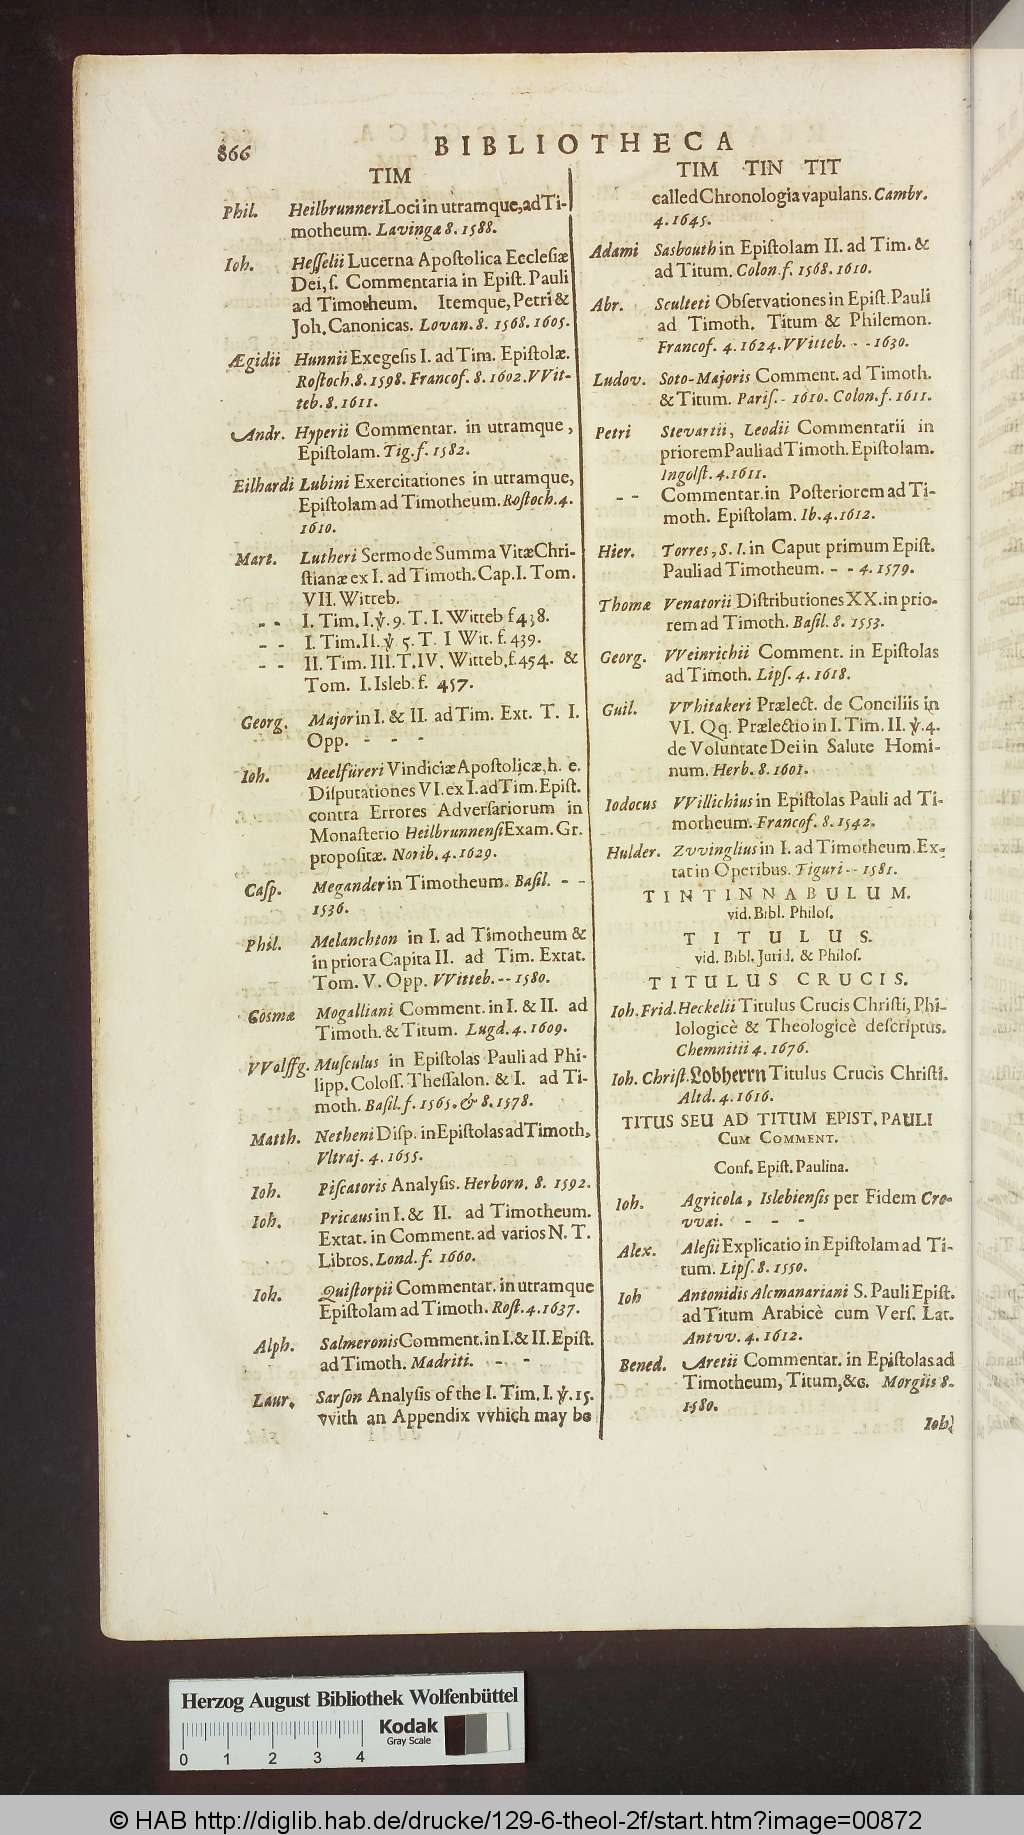 866
BIBLIOTHECA
TIM
Phil. HeilbrunneriLoci in utramque,ad Ti-
motheum. Lavingæ 8. 1588.
Ioh. Heſſelii Lucerna Apoſtolica Eccleſiæ
Dei, ſ. Commentaria in Epiſt. Pauli
ad Timotheum. Itemque, Petri &
Joh. Canonicas. Lovan. 8. 1568. 1605.
Ægidii Hunnii Exegeſis I. ad Tim. Epiſtolæ.
Roſtoch. 8. 1598. Francof. 8. 1602. VVit-
teb. 8. 1611.
Andr. Hyperii Commentar. in utramque,
Epiſtolam. Tig. f. 1582.
Eilhardi Lubini Exercitationes in utramque,
Epiſtolam ad Timotheum. Roſtoch. 4.
1610.
Mart. Lutheri Sermo de Summa Vitæ Chri-
ſtianæ ex I. ad Timoth. Cap. I. Tom.
VII. Witteb.
- - I. Tim. I. ℣. 9. T. I. Witteb f 438.
- - I. Tim. II. ℣ 5. T. I Wit. f. 439.
- - II. Tim. III. T. IV. Witteb. f. 454. &
Tom. I. Isleb. f. 457.
Georg. Major in I. & II. ad Tim. Ext. T. I.
Opp. - - -
Ioh. Meelfüreri Vindiciæ Apoſtolicæ, h. e.
Diſputationes VI. ex I. ad Tim. Epiſt.
contra Errores Adverſariorum in
Monaſterio Heilbrunnenſi Exam. Gr.
propoſitæ. Norib. 4. 1629.
Caſp. Megander in Timotheum. Baſil. - -
1536.
Phil. Melanchton in I. ad Timotheum &
in priora Capita II. ad Tim. Extat.
Tom. V. Opp. VVitteb. - - 1580.
Cosmæ Mogalliani Comment. in I. & II. ad
Timoth. & Titum. Lugd. 4. 1609.
VVolffg. Muſculus in Epiſtolas Pauli ad Phi-
lipp. Coloſſ. Theſſalon. & I. ad Ti-
moth. Baſil. f. 1565. & 8. 1578.
Matth. Netheni Diſp. in Epiſtolas ad Timoth,
Vltraj. 4. 1655.
Ioh. Piſcatoris Analyſis. Herborn. 8. 1592.
Ioh. Pricæus in I. & II. ad Timotheum.
Extat. in Comment. ad varios N. T.
Libros. Lond. f. 1660.
Ioh. Quiſtorpii Commentar. in utramque
Epiſtolam ad Timoth. Roſt. 4. 1637.
Alph. Salmeronis Comment. in I. & II. Epiſt.
ad Timoth. Madriti. - -
Laur. Sarſon Analyſis of the I. Tim. I. ℣. 15.
vvith an Appendix vvhich may be
TIM TIN TIT
called Chronologia vapulans. Cambr.
4. 1645.
Adami Sasbouth in Epiſtolam II. ad Tim. &
ad Titum. Colon. f. 1568. 1610.
Abr. Sculteti Obſervationes in Epiſt. Pauli
ad Timoth. Titum & Philemon.
Francof. 4. 1624. VVitteb. - - 1630.
Ludov. Soto-Majoris Comment. ad Timoth.
& Titum. Pariſ. - 1610. Colon. f. 1611.
Petri Stevartii, Leodii Commentarii in
priorem Pauli ad Timoth. Epiſtolam.
Ingolſt. 4. 1611.
- - Commentar. in Poſteriorem ad Ti-
moth. Epiſtolam. Ib. 4. 1612.
Hier. Torres, S. I. in Caput primum Epiſt.
Pauli ad Timotheum. - - 4. 1579.
Thomæ Venatorii Diſtributiones XX. in prio-
rem ad Timoth. Baſil. 8. 1553.
Georg. VVeinrichii Comment. in Epiſtolas
ad Timoth. Lipſ. 4. 1618.
Guil. VVhitakeri Prælect. de Conciliis in
VI. Qq. Prælectio in I. Tim. II. ℣. 4.
de Voluntate Dei in Salute Homi-
num. Herb. 8. 1601.
Iodocus VVillichius in Epiſtolas Pauli ad Ti-
motheum. Francof. 8. 1542.
Hulder. Zvvinglius in I. ad Timotheum. Ex-
tat in Operibus. Tiguri - - 1581.
TINTINNABULUM.
vid. Bibl. Philoſ.
TITULUS.
vid. Bibl. Jurid. & Philoſ.
TITULUS CRUCIS.
Ioh. Frid. Heckelii Titulus Crucis Chriſti, Phi-
lologicè & Theologicè deſcriptus.
Chemnitii 4. 1676.
Ioh. Chriſt. Lobherrn Titulus Crucis Chriſti.
Altd. 4. 1616.
TITUS SEU AD TITUM EPIST. PAULI
CUM COMMENT.
Conf. Epiſt. Paulina.
Ioh. Agricola, Islebienſis per Fidem Cro-
vvai. - - -
Alex. Aleſii Explicatio in Epiſtolam ad Ti-
tum. Lipſ. 8. 1550.
Ioh Antonidis Alcmanariani S. Pauli Epiſt.
ad Titum Arabicè cum Verſ. Lat.
Antvv. 4. 1612.
Bened. Aretii Commentar. in Epiſtolas ad
Timotheum, Titum, &c. Morgiis 8.
1580.
Ioh.
Herzog August Bibliothek Wolfenbüttel
Kodak
Gray Scale
0 1 2 3 4
© HAB http://diglib.hab.de/drucke/129-6-theol-2f/start.htm?image=00872